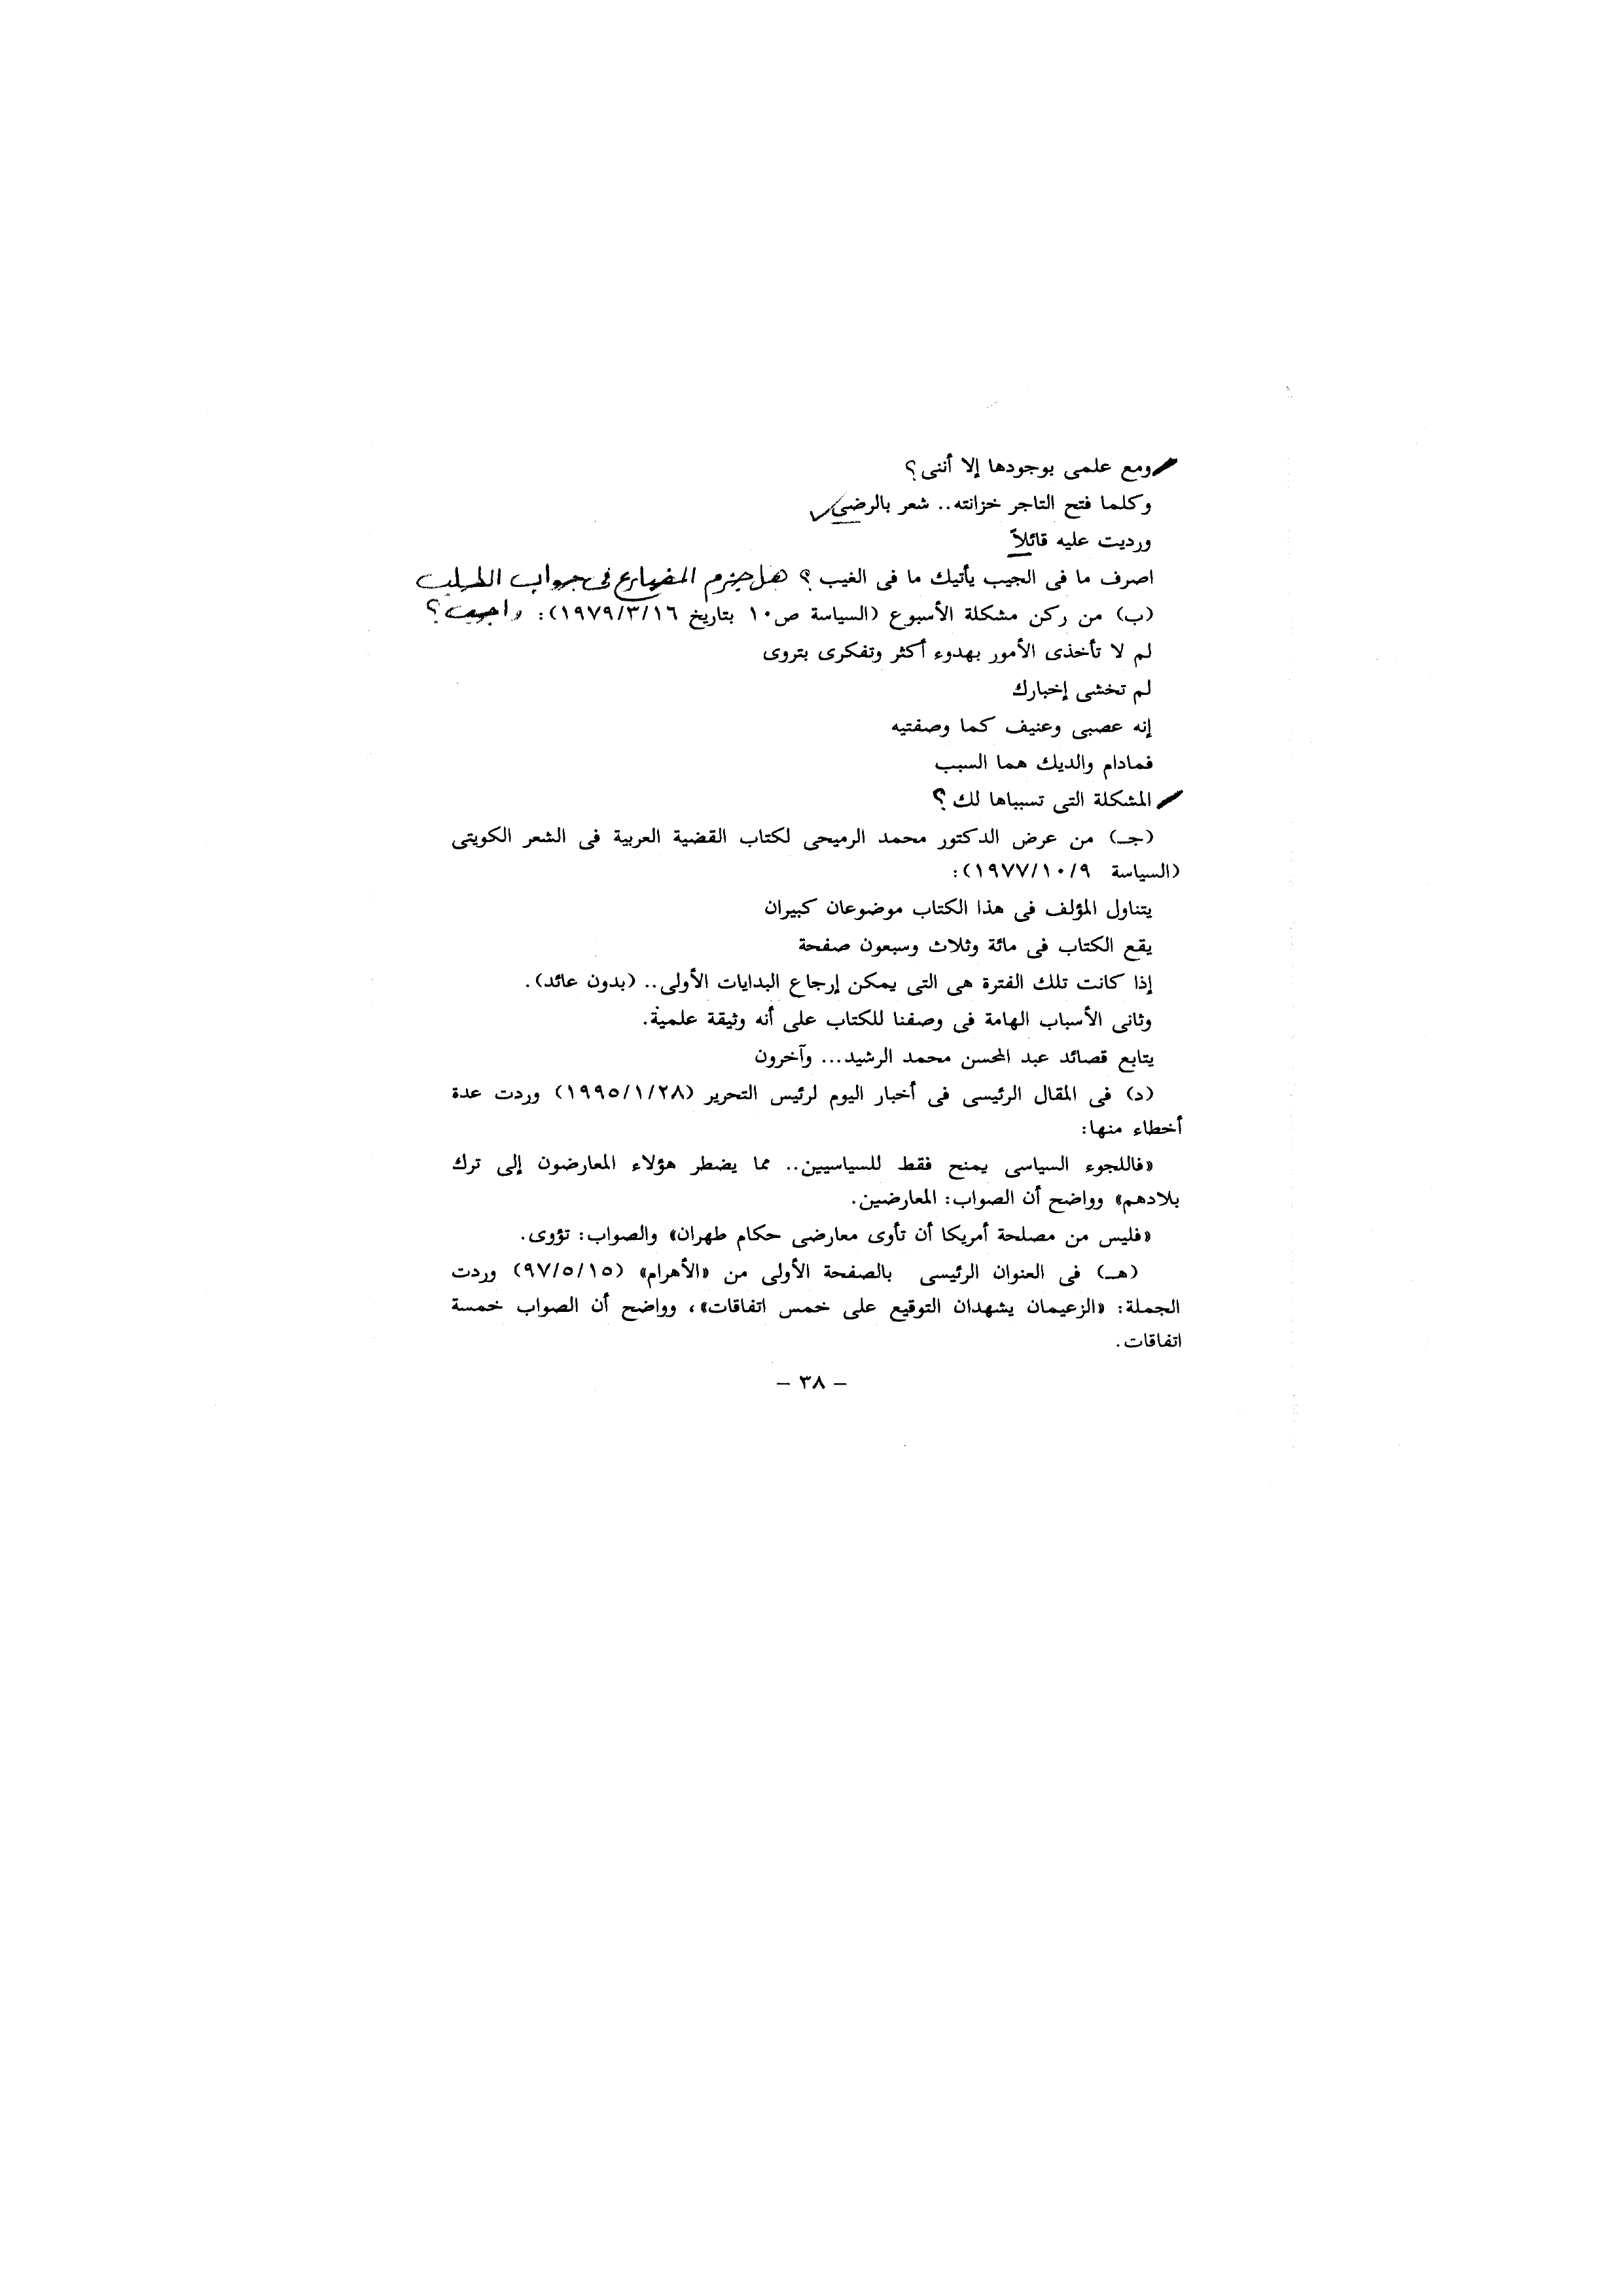 ومع علمى بوجودها إلا أننى؟
وكلما فتح التاجر خزانته.. شعر بالرضى
ورديت عليه قائلاً
اصرف ما فى الجيب يأتيك ما فى الغيب؟ هل جزم المضارع فى جواب الطلب
(ب) من ركن مشكلة الأسبوع (السياسة ص١٠ بتاريخ ١٩٧٩/٣/١٦): واجب؟
لم لا تأخذى الأمور بهدوء أكثر وتفكرى بتروى
لم تخشى إخبارك
إنه عصبى وعنيف كما وصفتيه
فمادام والديك هما السبب
المشكلة التى تسبباها لك؟
(جـ) من عرض الدكتور محمد الرميحى لكتاب القضية العربية فى الشعر الكويتى
(السياسة ١٩٧٧/١٠/٩):
يتناول المؤلف فى هذا الكتاب موضوعان كبيران
يقع الكتاب فى مائة وثلاث وسبعون صفحة
إذا كانت تلك الفترة هى التى يمكن إرجاع البدايات الأولى.. (بدون عائد).
وثانى الأسباب الهامة فى وصفنا للكتاب على أنه وثيقة علمية.
يتابع قصائد عبد المحسن محمد الرشيد... وآخرون
(د) فى المقال الرئيسى فى أخبار اليوم لرئيس التحرير (١٩٩٥/١/٢٨) وردت عدة
أخطاء منها:
«فاللجوء السياسى يمنح فقط للسياسيين.. مما يضطر هؤلاء المعارضون إلى ترك
بلادهم» وواضح أن الصواب: المعارضين.
«فليس من مصلحة أمريكا أن تأوى معارضى حكام طهران» والصواب: تؤوى.
(هـ) فى العنوان الرئيسى بالصفحة الأولى من «الأهرام» (٩٧/٥/١٥) وردت
الجملة: «الزعيمان يشهدان التوقيع على خمس اتفاقات»، وواضح أن الصواب خمسة
اتفاقات.
– ٣٨ –